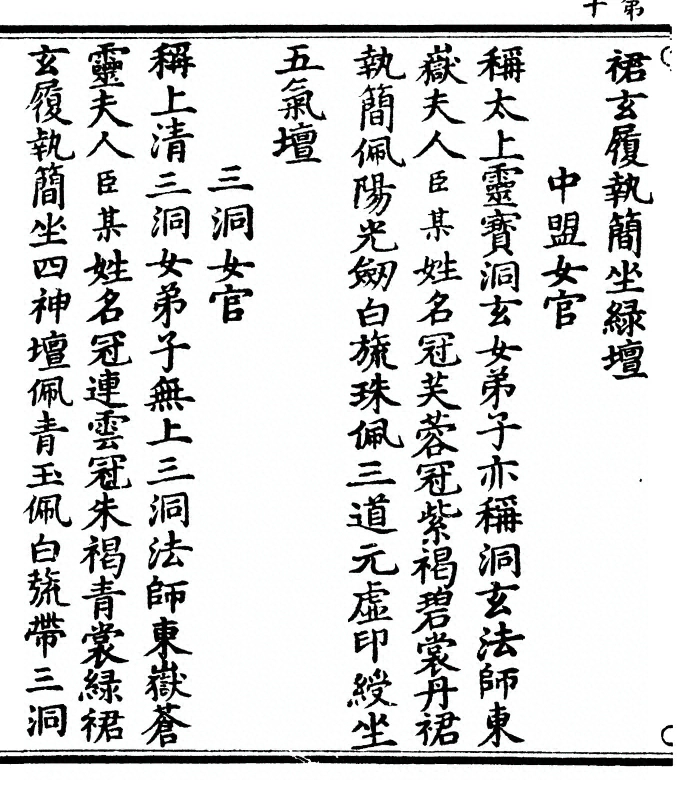 第十
裙玄履執簡坐綠壇
中盟女官
稱太上靈寶洞玄女弟子亦稱洞玄法師東
嶽夫人臣某姓名冠芙蓉冠紫褐碧裳丹裙
執簡佩陽光劒白旒珠佩三道元虛印綬坐
五氣壇
三洞女官
稱上清三洞女弟子無上三洞法師東嶽蒼
靈夫人臣某姓名冠連雲冠朱褐青裳綠裙
玄履執簡坐四神壇佩青玉佩白旒帶三洞